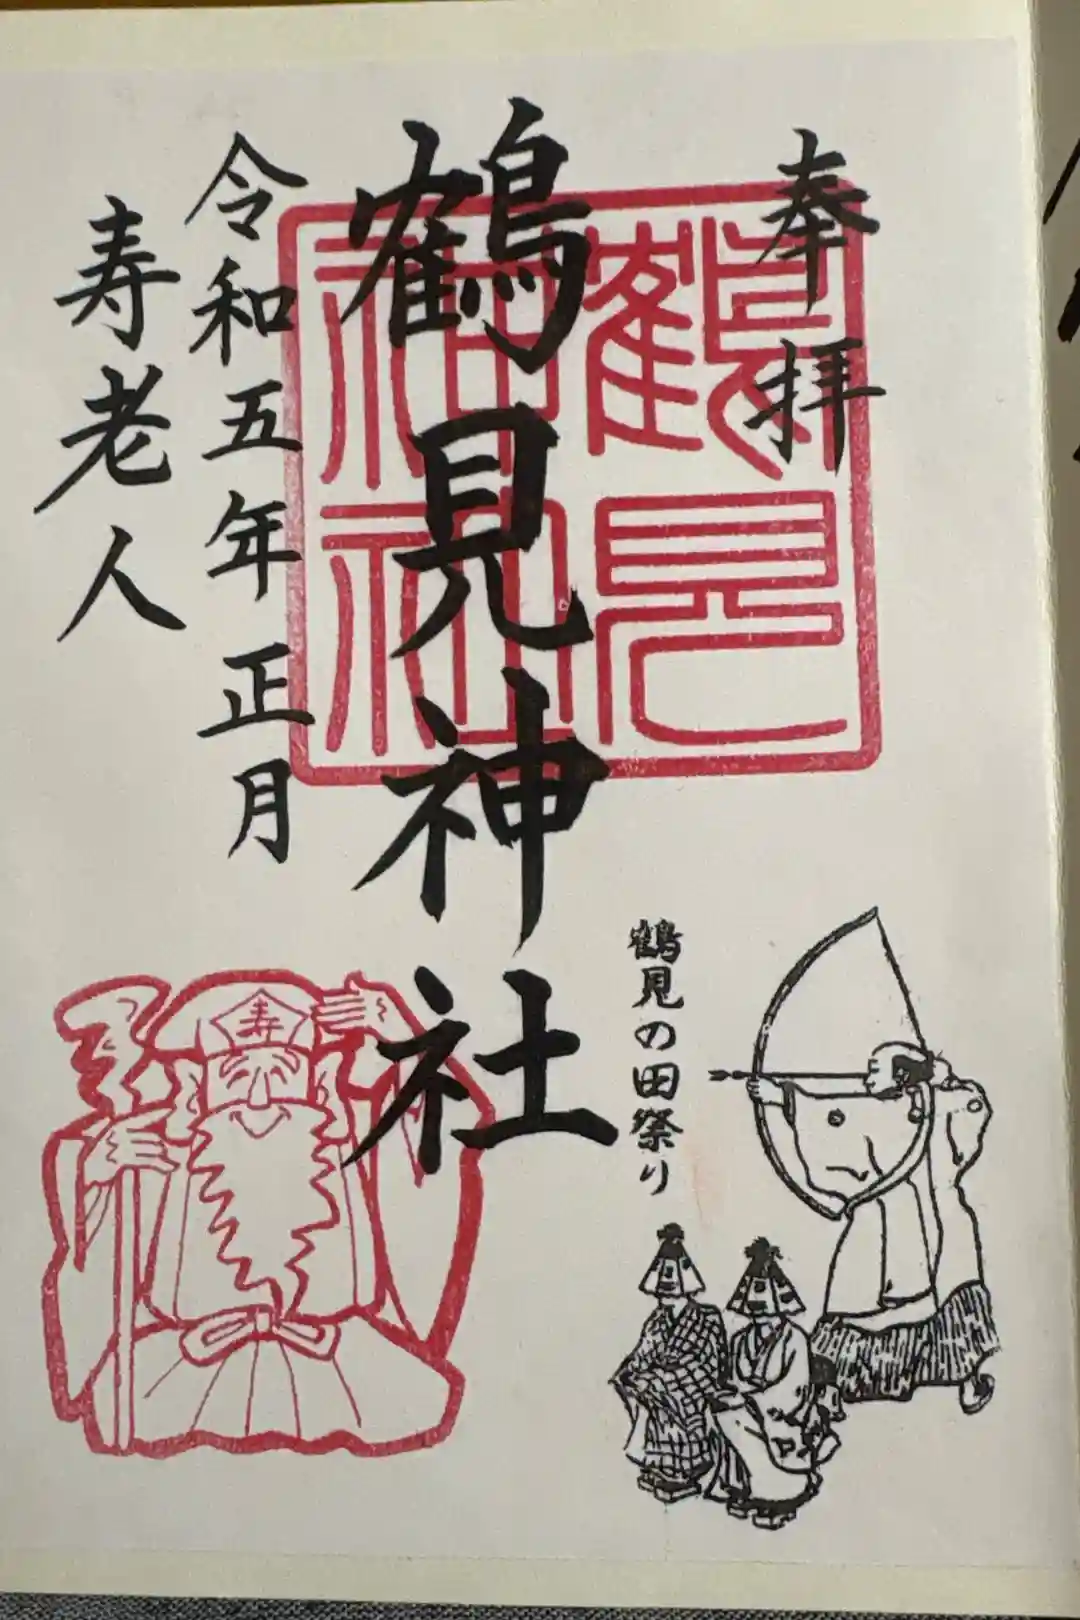 奉拝
鶴見神社
鶴見
神社
令和五年正月
寿老人
鶴見の田祭り
寿